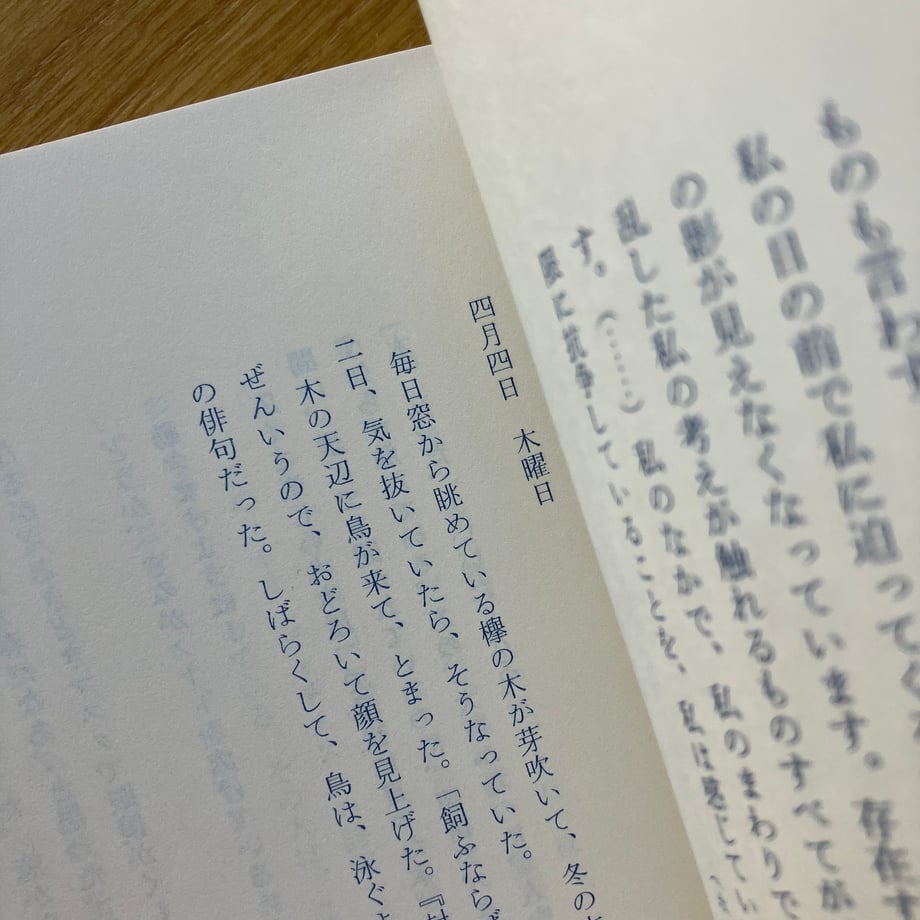 ものも言わず
私の目の前で私に迫ってく
の影が見えなくなっています。存在す
乱した私の考えが触れるものすべてが
す。（……）私のなかで、私のまわりで
に抗争していることを、私は感じてい
四月四日　木曜日
毎日窓から眺めている欅の木が芽吹いて、冬の
二日、気を抜いていたら、そうなっていた。
木の天辺に鳥が来て、とまった。「飼ふなら
ぜんいうので、おどろいて顔を見上げた。『
の俳句だった。しばらくして、鳥は、泳ぐ